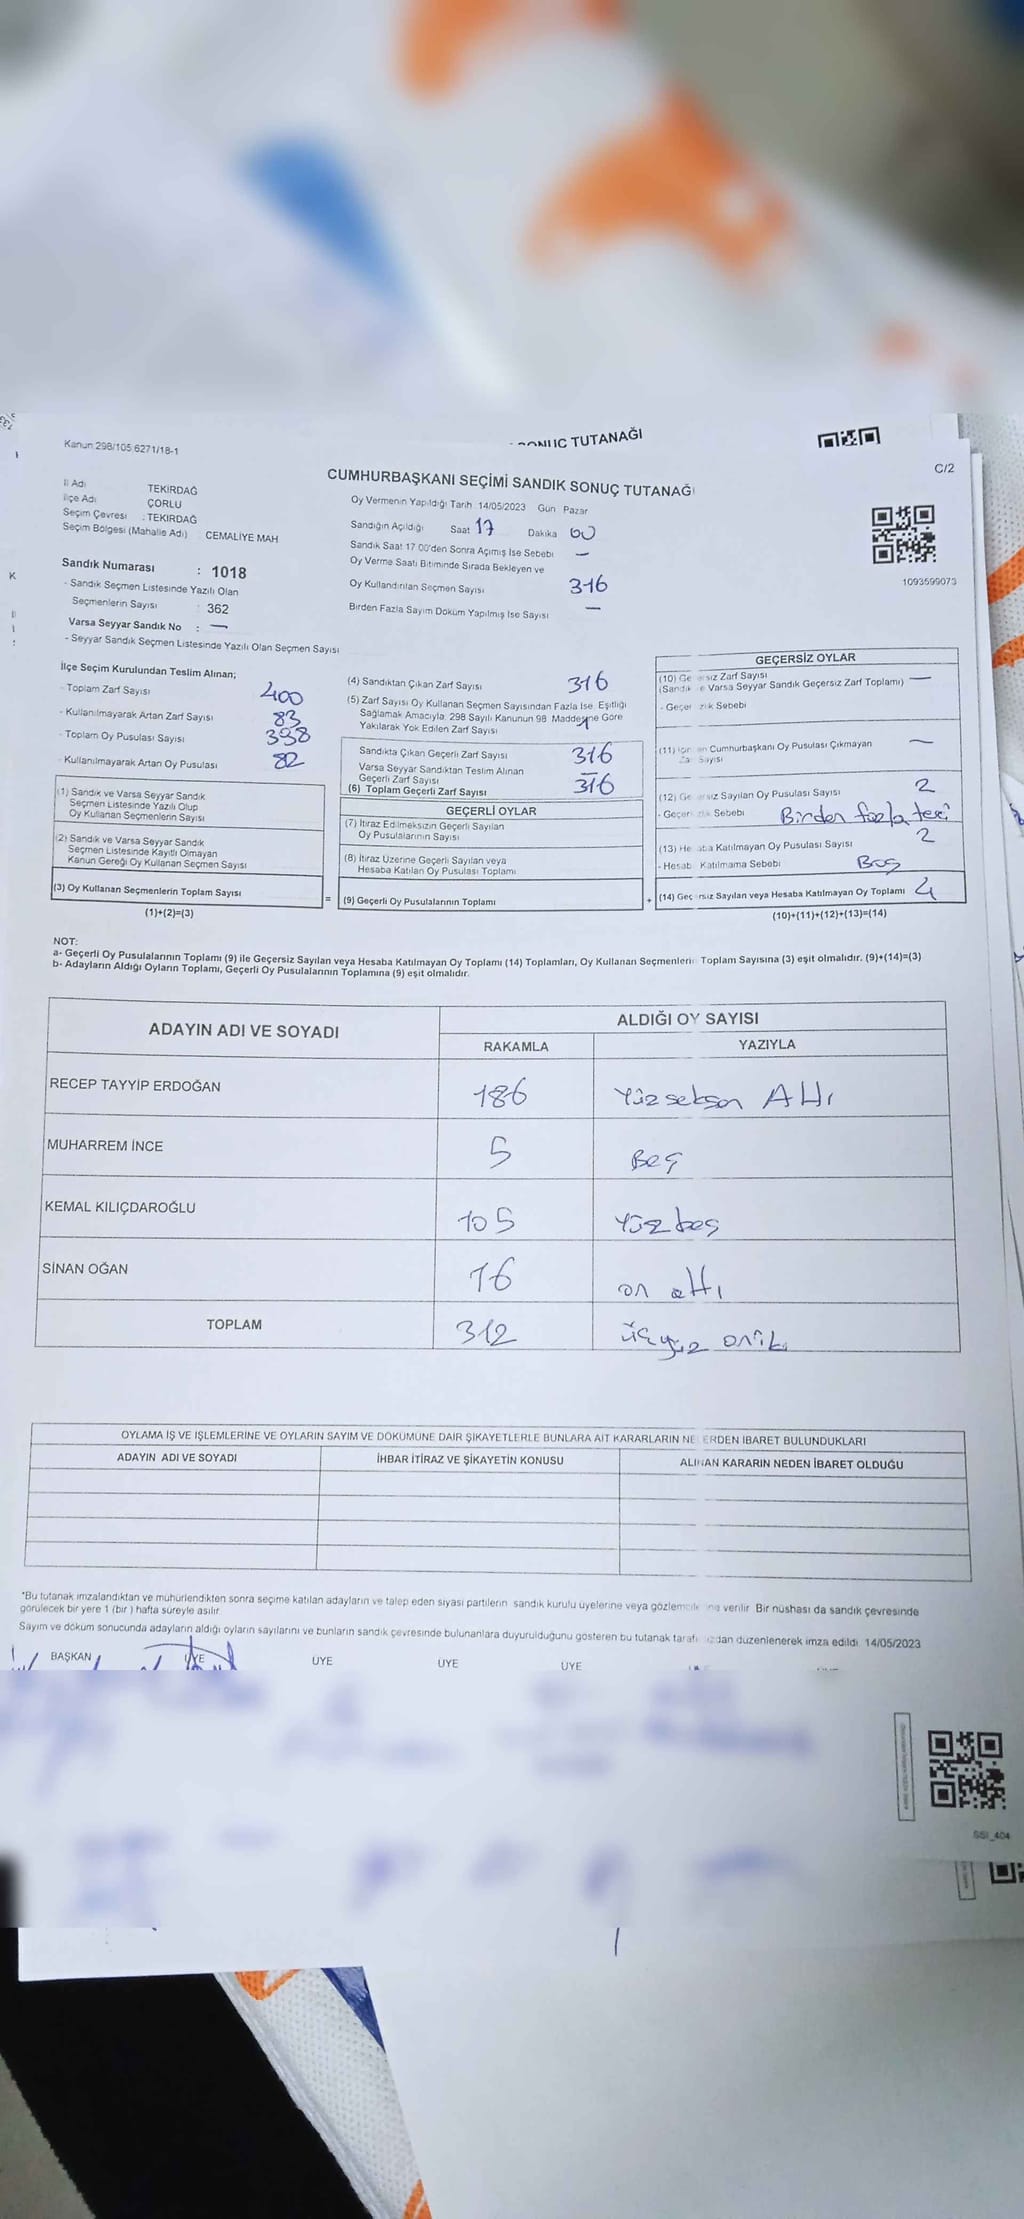 Kanun 298/105 6271/18-1
SONUÇ TUTANAĞI
C/2
CUMHURBAŞKANI SEÇİMİ SANDIK SONUÇ TUTANAĞI
İl Adı TEKİRDAĞ
İlçe Adı ÇORLU
Seçim Çevresi : TEKİRDAĞ
Seçim Bölgesi (Mahalle Adı) : CEMALİYE MAH
Oy Vermenin Yapıldığı Tarih 14/05/2023 Gün Pazar
Sandığın Açıldığı Saat 17 Dakika 00
Sandık Saat 17 00'den Sonra Açımış İse Sebebi —
Oy Verme Saati Bitiminde Sırada Bekleyen ve
Oy Kullandırılan Seçmen Sayısı 316
Birden Fazla Sayım Döküm Yapılmış İse Sayısı —
1093599073
Sandık Numarası : 1018
- Sandık Seçmen Listesinde Yazılı Olan
Seçmenlerin Sayısı : 362
Varsa Seyyar Sandık No : —
- Seyyar Sandık Seçmen Listesinde Yazılı Olan Seçmen Sayısı
İlçe Seçim Kurulundan Teslim Alınan;
- Toplam Zarf Sayısı 400
- Kullanılmayarak Artan Zarf Sayısı 83
- Toplam Oy Pusulası Sayısı 398
- Kullanılmayarak Artan Oy Pusulası 82
(1) Sandık ve Varsa Seyyar Sandık
Seçmen Listesinde Yazılı Olup
Oy Kullanan Seçmenlerin Sayısı
(2) Sandık ve Varsa Seyyar Sandık
Seçmen Listesinde Kayıtlı Olmayan
Kanun Gereği Oy Kullanan Seçmen Sayısı
(3) Oy Kullanan Seçmenlerin Toplam Sayısı
(1)+(2)=(3)
(4) Sandıktan Çıkan Zarf Sayısı 316
(5) Zarf Sayısı Oy Kullanan Seçmen Sayısından Fazla İse. Eşitliği
Sağlamak Amacıyla, 298 Sayılı Kanunun 98 Maddesine Göre
Yakılarak Yok Edilen Zarf Sayısı 1
Sandıkta Çıkan Geçerli Zarf Sayısı 316
Varsa Seyyar Sandıktan Teslim Alınan
Geçerli Zarf Sayısı —
(6) Toplam Geçerli Zarf Sayısı 316
GEÇERLİ OYLAR
(7) İtiraz Edilmeksizin Geçerli Sayılan
Oy Pusulalarının Sayısı
(8) İtiraz Üzerine Geçerli Sayılan veya
Hesaba Katılan Oy Pusulası Toplamı
= (9) Geçerli Oy Pusulalarının Toplamı +
GEÇERSİZ OYLAR
(10) Ge ersiz Zarf Sayısı
(Sandık e Varsa Seyyar Sandık Geçersiz Zarf Toplamı) —
- Geçer zlik Sebebi
(11) İçin en Cumhurbaşkanı Oy Pusulası Çıkmayan —
Za Sayısı
(12) Ge ersiz Sayılan Oy Pusulası Sayısı 2
- Geçer zlik Sebebi Birden fazla ter
(13) He aba Katılmayan Oy Pusulası Sayısı 2
- Hesab Katılmama Sebebi Boş
(14) Geç rsiz Sayılan veya Hesaba Katılmayan Oy Toplamı 4
(10)+(11)+(12)+(13)=(14)
NOT:
a- Geçerli Oy Pusulalarının Toplamı (9) ile Geçersiz Sayılan veya Hesaba Katılmayan Oy Toplamı (14) Toplamları, Oy Kullanan Seçmenlerin Toplam Sayısına (3) eşit olmalıdır. (9)+(14)=(3)
b- Adayların Aldığı Oyların Toplamı, Geçerli Oy Pusulalarının Toplamına (9) eşit olmalıdır.
ADAYIN ADI VE SOYADI ALDIĞI OY SAYISI
RAKAMLA YAZIYLA
RECEP TAYYİP ERDOĞAN 186 Yüz seksen Altı
MUHARREM İNCE 5 Beş
KEMAL KILIÇDAROĞLU 105 Yüz beş
SİNAN OĞAN 16 on altı
TOPLAM 312 üçyüz oniki
OYLAMA İŞ VE İŞLEMLERİNE VE OYLARIN SAYIM VE DÖKÜMÜNE DAİR ŞİKAYETLERLE BUNLARA AİT KARARLARIN NE ERDEN İBARET BULUNDUKLARI
ADAYIN ADI VE SOYADI İHBAR İTİRAZ VE ŞİKAYETİN KONUSU ALINAN KARARIN NEDEN İBARET OLDUĞU
*Bu tutanak imzalandıktan ve mühürlendikten sonra seçime katılan adayların ve talep eden siyasi partilerin sandık kurulu üyelerine veya gözlemcile ne verilir Bir nüshası da sandık çevresinde
görülecek bir yere 1 (bir ) hafta süreyle asılır
Sayım ve döküm sonucunda adayların aldığı oyların sayılarını ve bunların sandık çevresinde bulunanlara duyurulduğunu gösteren bu tutanak taraf ızdan düzenlenerek imza edildi. 14/05/2023
BAŞKAN ÜYE ÜYE ÜYE ÜYE
SSI_404